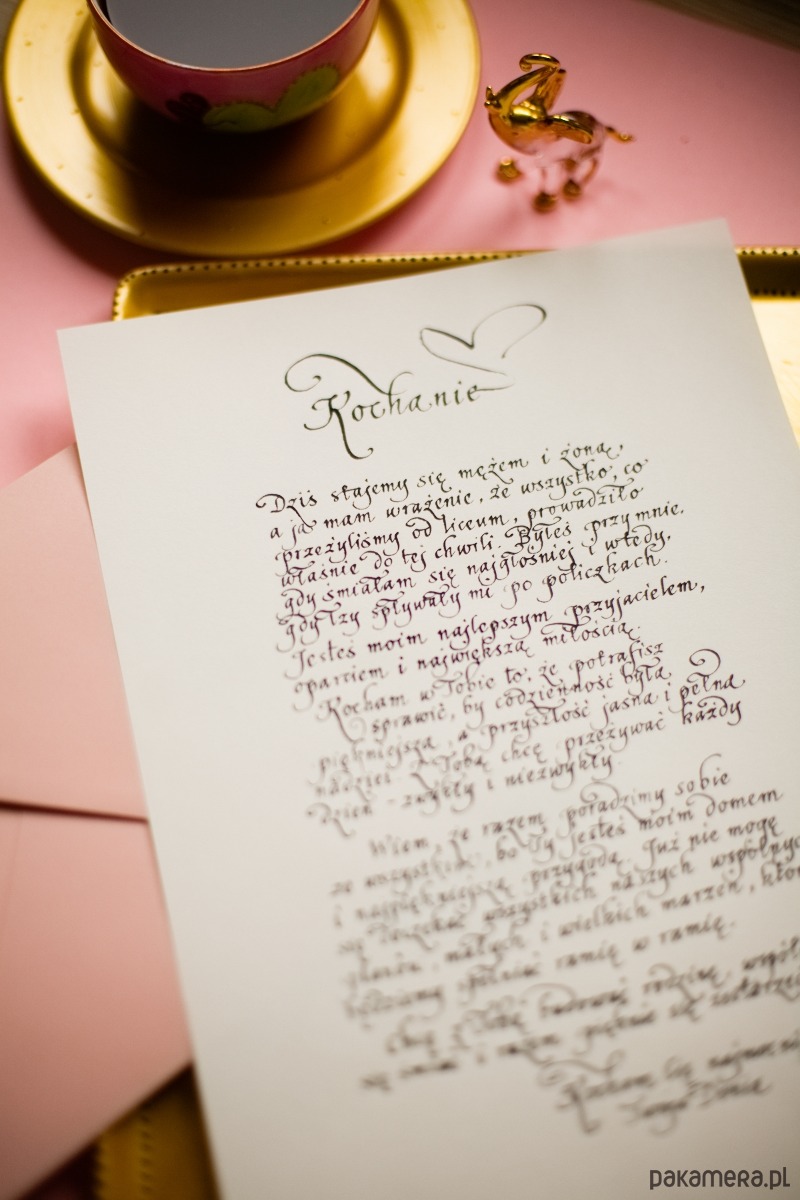 Kochanie
Dziś stajemy się mężem i żoną,
a ja mam wrażenie, że wszystko, co
przeżyliśmy od liceum, prowadziło
właśnie do tej chwili. Byłeś przy mnie,
gdy śmiałam się najgłośniej i wtedy,
gdy łzy spływały mi po policzkach.
Jesteś moim najlepszym przyjacielem,
oparciem i największą miłością.
Kocham w Tobie to, że potrafisz
sprawić, by codzienność była
piękniejsza, a przyszłość jasna i pełna
nadziei. Z Tobą chcę przeżywać każdy
dzień - zwykły i niezwykły.
Wiem, że razem poradzimy sobie
ze wszystkim, bo Ty jesteś moim domem
i najpiękniejszą przygodą. Już nie mogę
się doczekać wszystkich naszych wspólnych
planów, małych i wielkich marzeń,
będziemy spełniać ramię w ramię.
Chcę z Tobą budować rodzinę,
się i razem pięknie się
Kocham Cię
Twoja
pakamera.pl